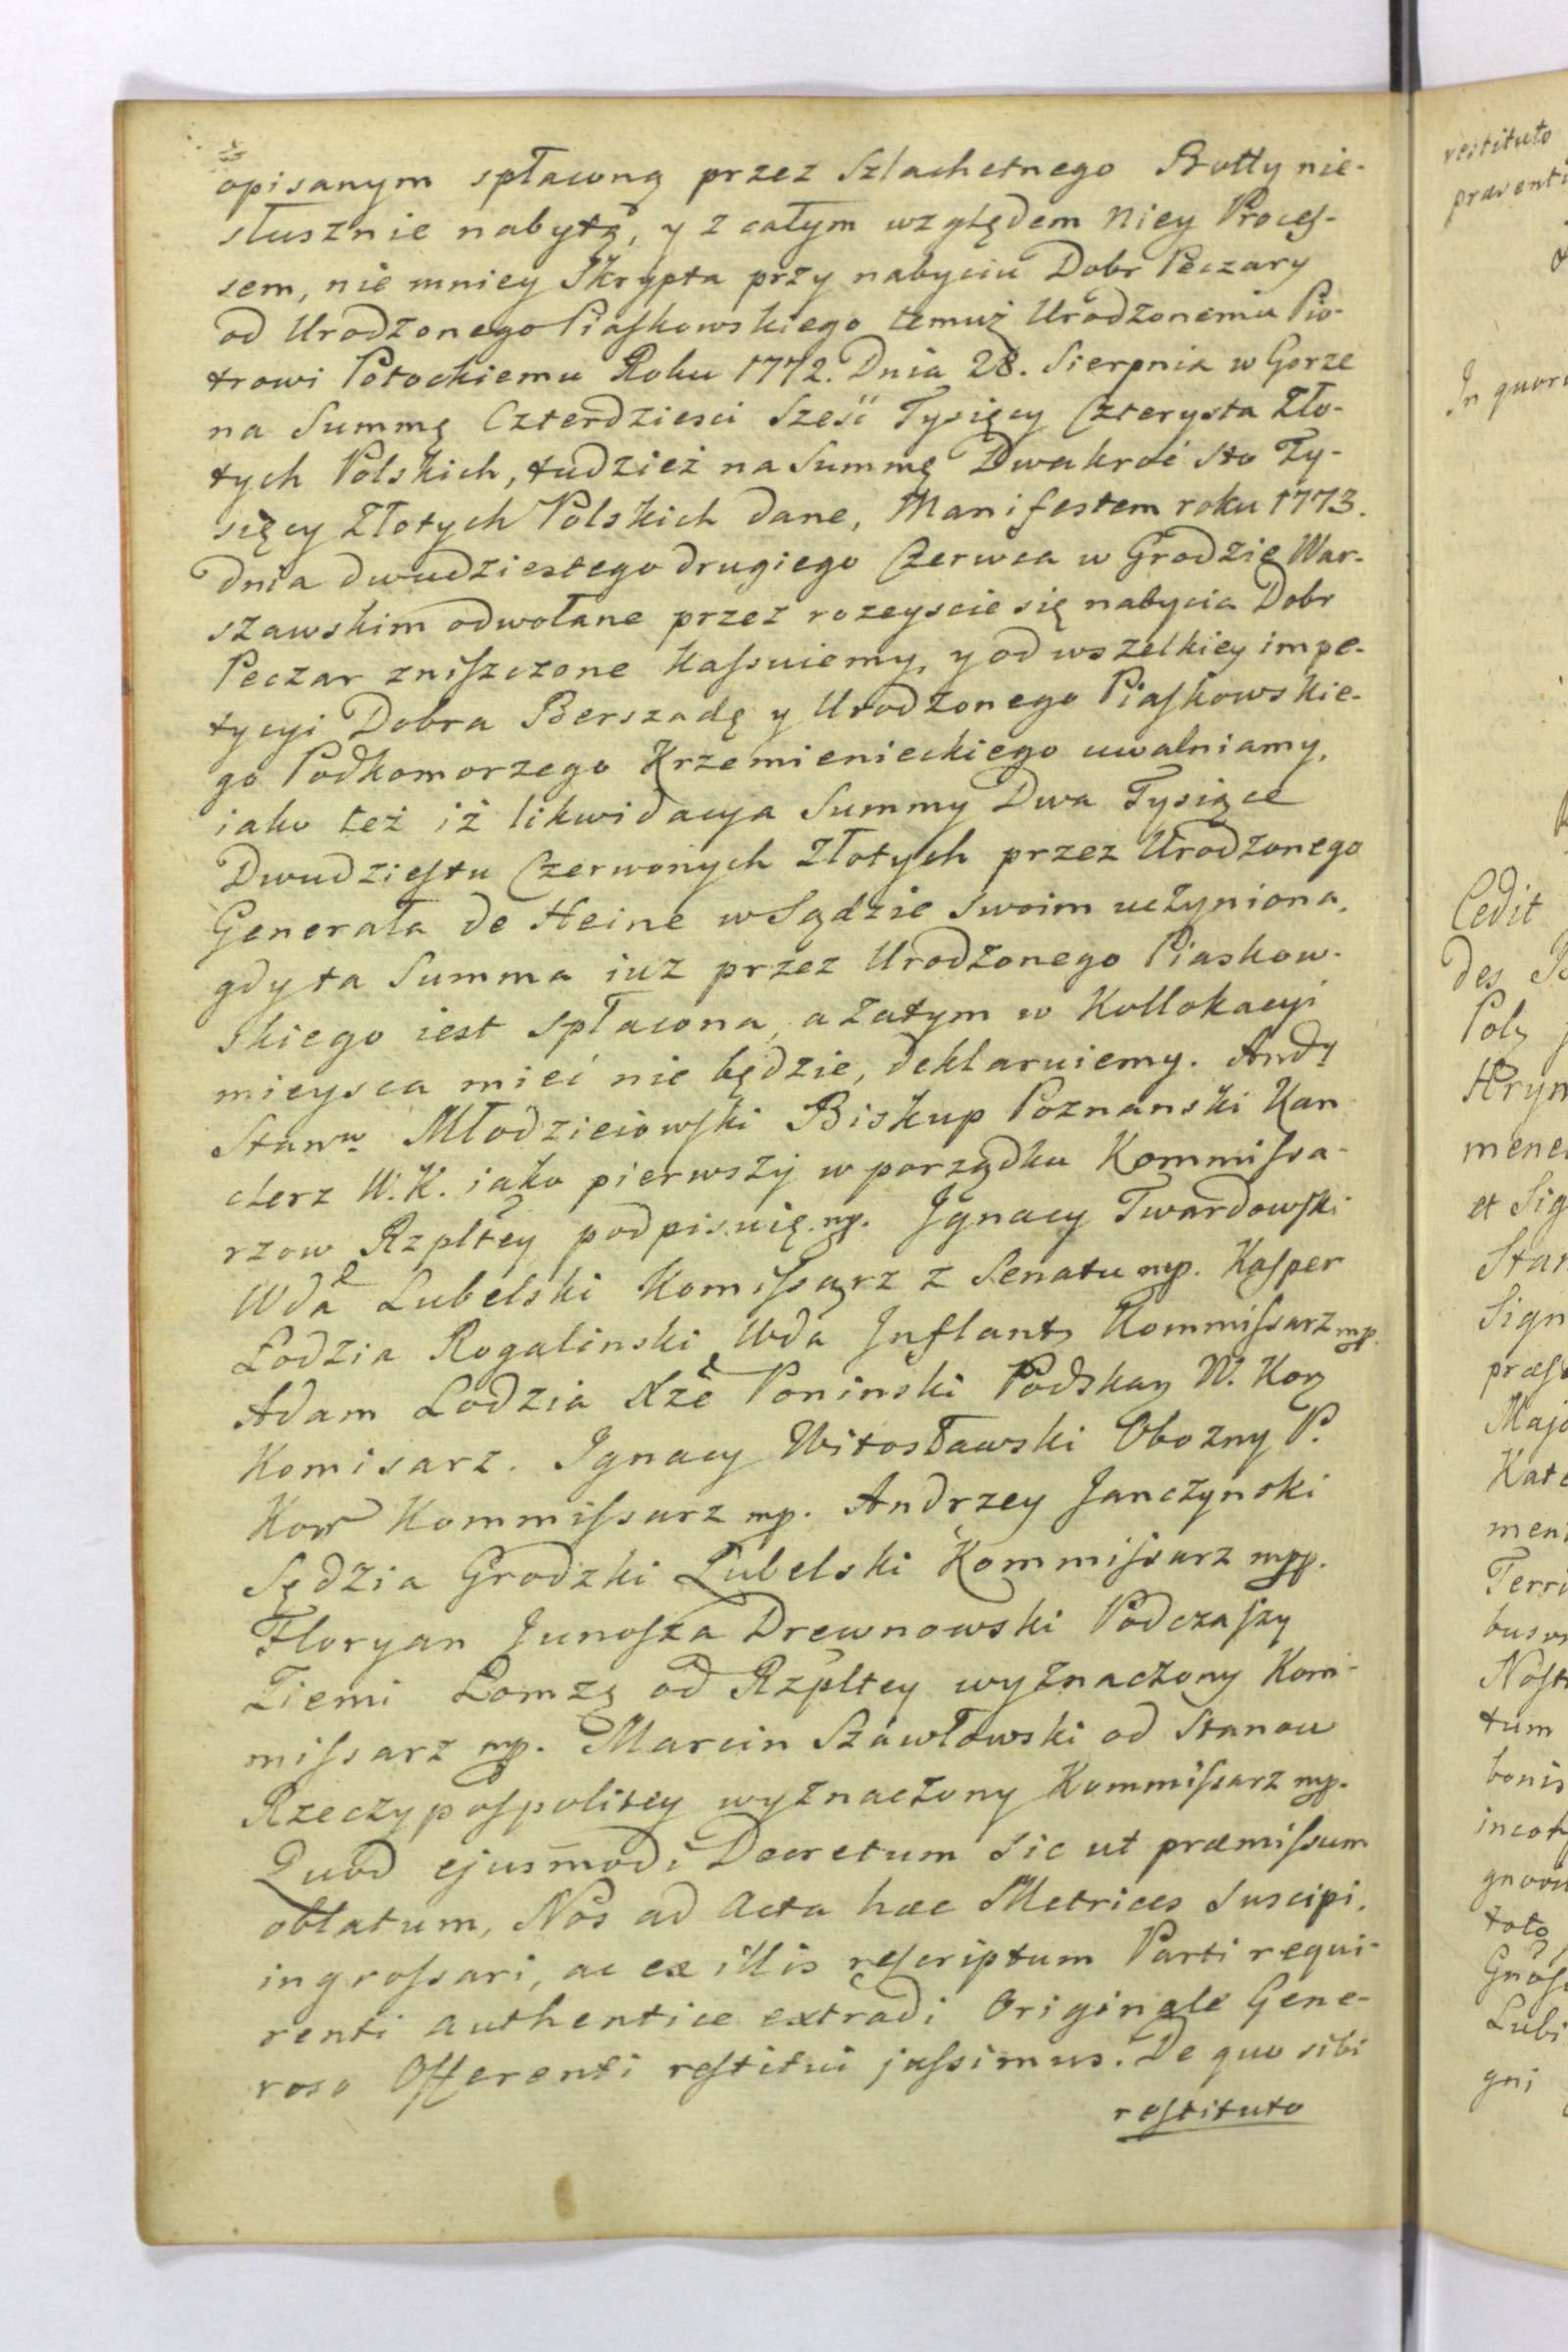 opisanym spłaconą przez Szlachetnego Botty nie-
słusznie nabytą, y z całym względem Niey Proceſ-
sem, nie mniey Skrypta przy nabyciu Dobr Peczary
od Urodzonego Piaſkowskiego temuż Urodzonemu Pio-
trowi Potockiemu Roku 1772. Dnia 28. Sierpnia w Gorze
na Summę Czterdziesci Sześć Tysięcy Czterysta Zło-
tych Polskich, tudzież na Summę Dwakroć sto Ty-
sięcy Złotych Polskich dane, Manifestem roku 1773.
dnia dwudziestego drugiego Czerwca w Grodzie War-
szawskim odwołane przez rozeyscie się nabycia Dobr
Peczar zniſzczone kaſsuiemy, y od wszelkiey impe-
tycyi Dobra Berszadę y Urodzonego Piaſkowskie-
go Podkomorzego Krzemienieckiego uwalniamy,
iako też iż likwidacya Summy Dwa Tysiące
Dwudzieſtu Czerwonych Złotych przez Urodzonego
Generała de Heine w Sądzie swoim uczyniona,
gdy ta Summa iuz przez Urodzonego Piaskow-
skiego iest spłacona, a zatym w Kollokacyi
mieysca mieć nie będzie, deklaruiemy. Andʒ
Stanw Młodzieiowſki Biskup Poznanski Kan
clerz W. K. iako pierwszy w porządku Kommiſsa-
rzow Rzpltey podpisuię mp. Jgnacy Twardowſki
Wda Lubelski Komiſsarz z Senatu mp. Kaſper
Lodzia Rogalinski Wda Jnflantʒ Kommiſsarz mp.
Adam Lodzia Xże Poninski Podskaʒ W. Korʒ
Komisarz. Ignacy Witosławski Obozny P.
Kor Kommiſsarz mp. Andrzey Janczynski
Sędzia Grodzki Lubelski Kommiſsarz mpp.
Floryan Junoſza Drewnowski Podczaſzy
Ziemi Lomzʒ od Rzpltey wyznaczony Kom-
miſsarz mp. Marcin Szawłowski od Stanow
Rzeczypoſpolitey wyznaczony Kommiſsarz mp.
Quod ejusmodi Decretum sic ut præmiſsum
oblatum, Nos ad Acta hæc Metrices Suscipi,
ingroſsari, ac ex illis reſcriptum Parti requi-
renti authentice extradi Originale Gene-
roso Offerenti reſtitui juſsimus. De quo sibi
reſtituto

restituto
Cedit
des
Polʒ
mene
et Sig
Stan
Sign
præſ
Majo
Kat
men
Terri
bus
Noſt
tum
bonis
Lubi
gni